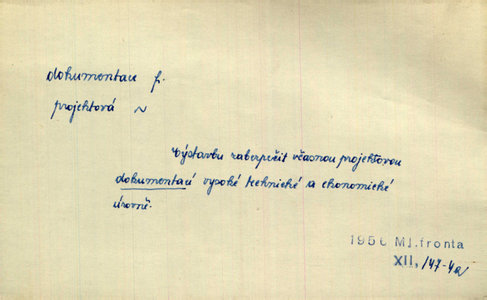 dokumentace f.
projektová ~
Výstavbu zabezpečit včasnou projektovou
dokumentací vysoké technické a ekonomické
úrovně.
1956 Ml. fronta
XII, /47-4a